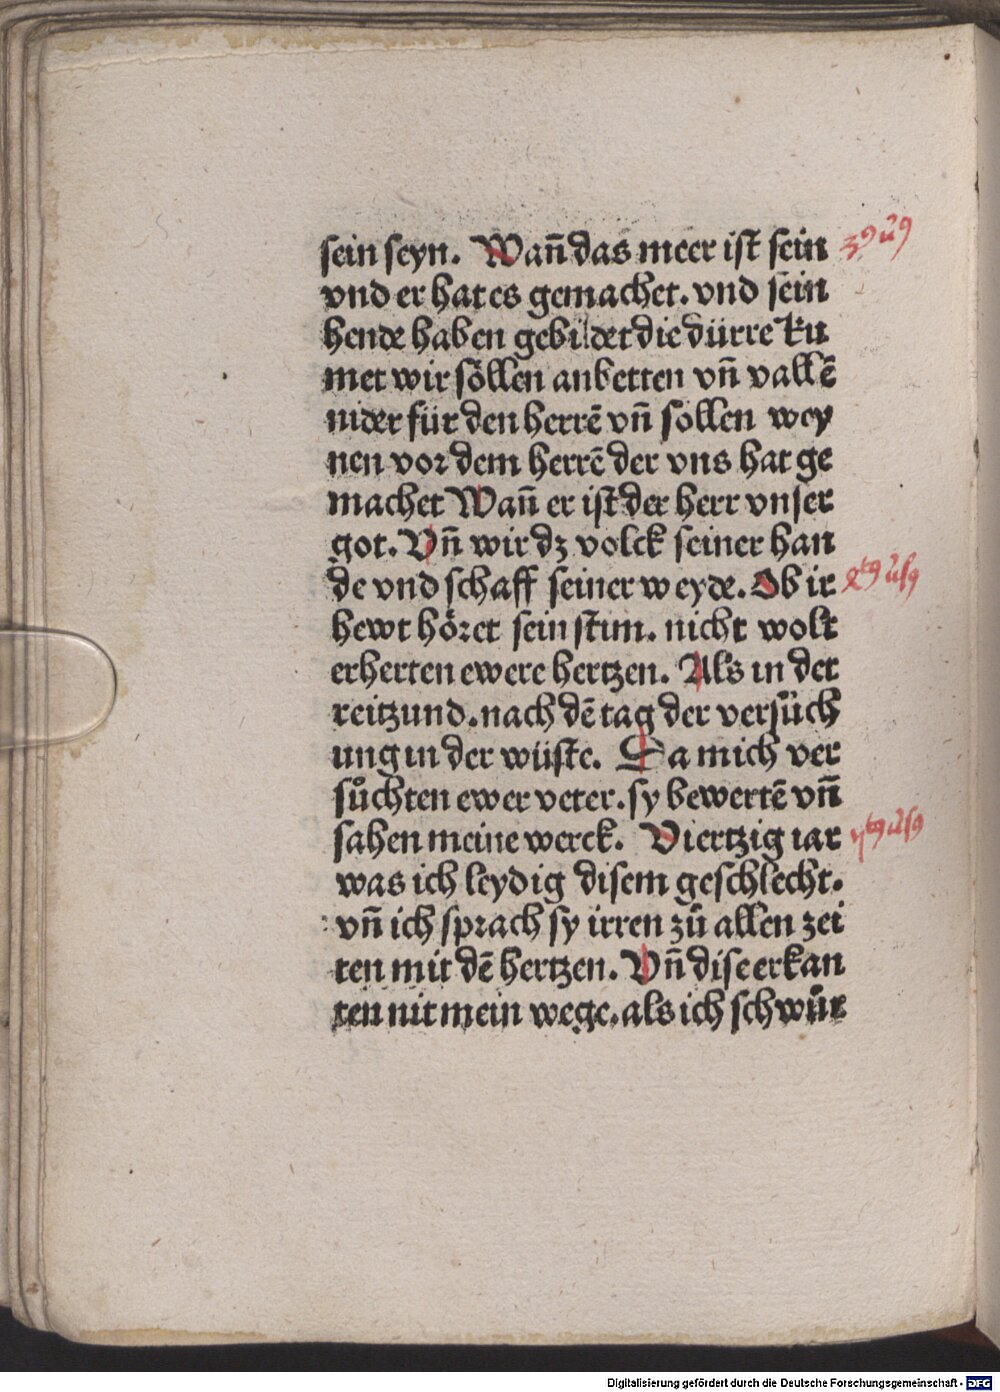 sein seyn. Wañ das meer ist sein
vnd er hat es gemachet. vnd sein
hende haben gebildet die dürre Ku
met wir söllen anbetten vñ vallē
nider für den herrē vñ söllen wey
nen vor dem herrē der vns hat ge
machet Wañ er ist der herr vnser
got. Vñ wir dz volck seiner han
de vnd schaff seiner weyde. Ob ir
hewt höret sein stim. nicht wolt
erherten ewere hertzen. Als in der
reitzund. nach dē tag der versůch
ung in der wüste. Da mich ver
sůchten ewer veter. sy bewertē vñ
sahen meine werck. Viertzig iar
was ich leydig disem geschlecht.
vñ ich sprach sy irren zů allen zei
ten mit dē hertzen. Vñ dise erkan
ten nit mein wege. als ich schwůr
Digitalisierung gefördert durch die Deutsche Forschungsgemeinschaft - DFG